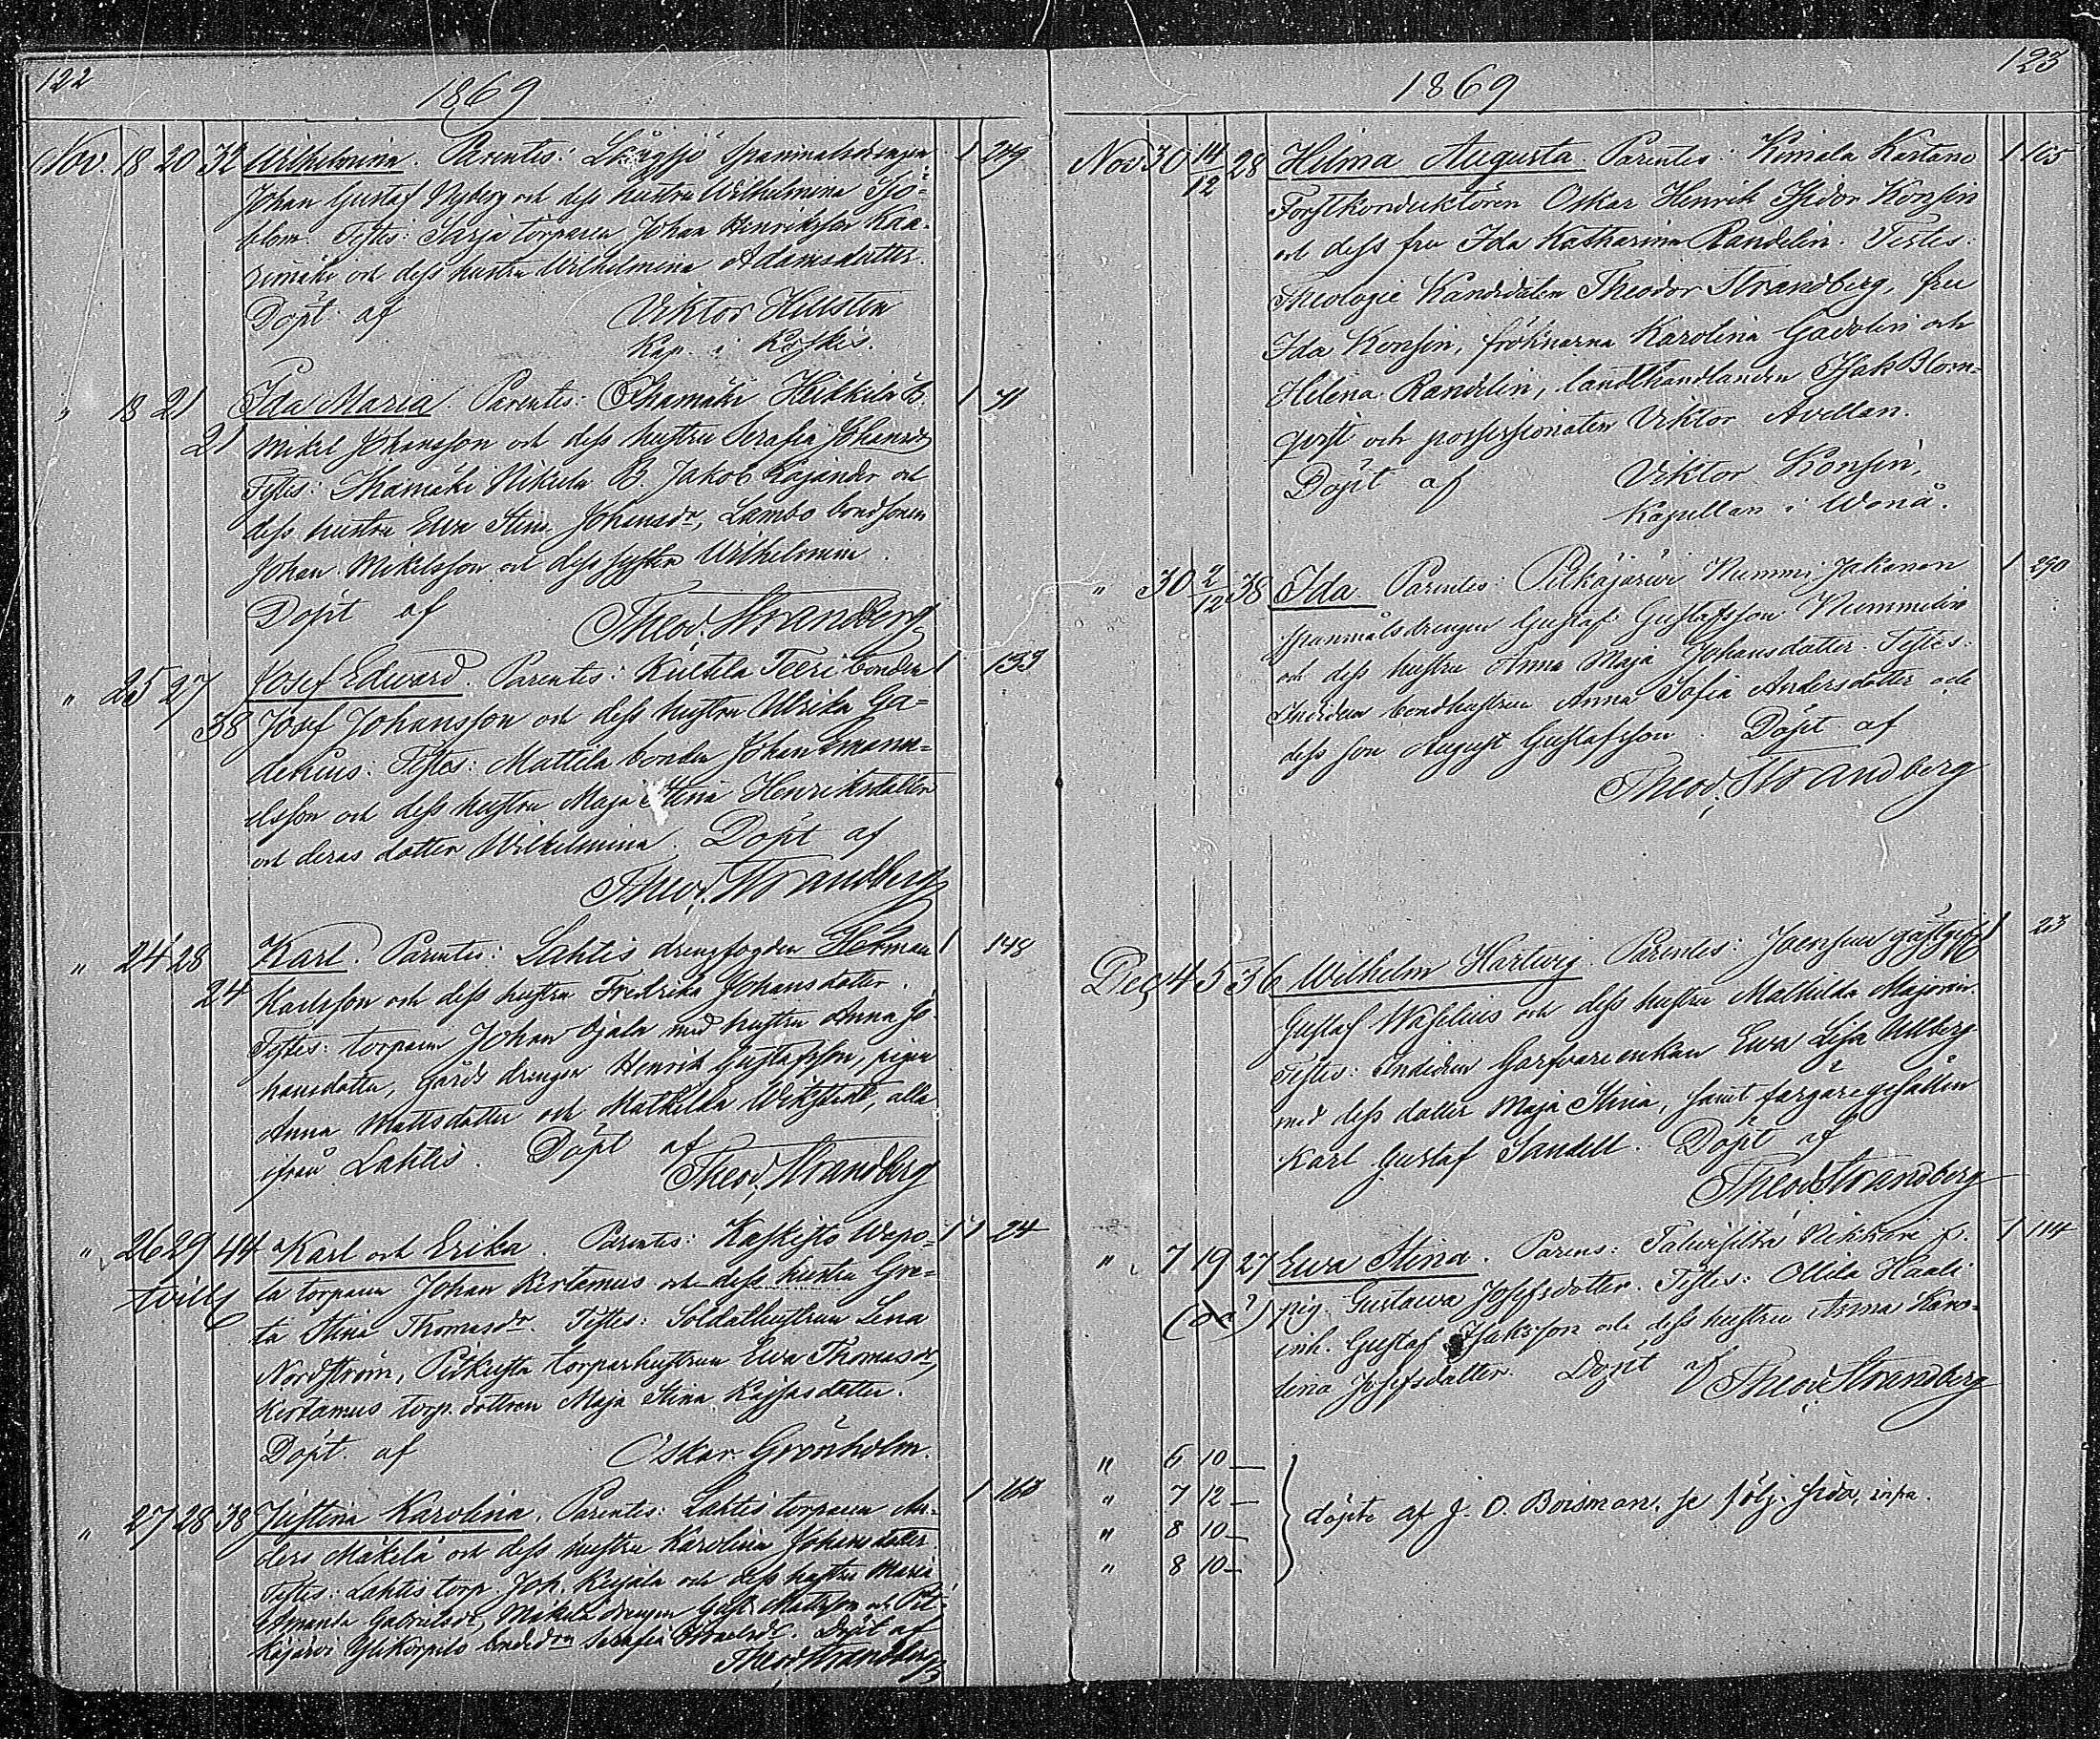 122
1869
Nov. 18 20 32 Wilhelmina. Parentes: Långsjö spanmålsdrengen 1 249
Johan Gustaf Nyberg och dess hustru Wilhelmina Sjö-
blom. Testes: Sarja torparen Johan Henriksson Kaa-
rimäki och dess hustru Wilhelmina Adamsdotter.
Döpt af Viktor Hellsten
Kap. i Koskis.
" 18 21 Ida Maria. Parentes: Heikkilä B. 1
21 Mikel Johansson och dess hustru Serafia Johansdr
Testes: Ihamäki Nikula B. Jakob Kajander och
dess hustru Ewa Stina Johansdr, Lambo bondsonen
Johan Mikelsson och dess syster Wilhelmina
Döpt af Theod. Strandberg
" 25 27 Josef Edward. Parentes: Kultila Teeri bonden 1 133
38 Josef Johansson och dess hustru Ulrika Ga-
denius. Testes: Mattila bonden Johan Emanu-
elsson och dess hustru Maja Stina Henriksdotter
och deras dotter Wilhelmina. Döpt af
Theod. Strandberg
" 24 28 Karl. Parentes: Lahtis drengfogden Herman 1 148
24 Karlsson och dess hustru Fredrika Johansdotter.
Testes: torparen Johan Ojala med hustru Anna Jo-
hansdotter, gårds drengen Henrik Gustafsson, pigan
Anna Mattsdotter och Mathilda, alla
ifrån Lahtis. Döpt af
Theod. Strandberg
" 26 29 44 Karl och Erika. Parentes: Kaskisto Wepo- 1 1 24
tvill. la torparen Johan Kertamus och dess hustru Gre-
ta Stina Thomasdr. Testes: Soldathustrun Lena
Nordström, torparhustrun Ewa Thomasdr,
Kertamus torp. dottren Maja Stina Kajsasdotter.
Döpt af Oskar Grönholm.
" 27 28 38 Justina Karolina. Parentes: Lahtis torparen An- 1 160
ders Mäkelä och dess hustru Karolina Johansdotter
Testes: Lahtis torp. Joh. Kujala och dess hustru Maria
Amanda Gabrielsdr, Mäkelä drengen Gust. Mattsson och Pit-
käjärvi Ylikorpelo bondedr Serafia. Döpt af
Theod Strandberg
123
1869
Nov 30 14/12 28 Hilma Augusta. Parentes: Kimala Kartano 1 165
Forstkonduktören Oskar Henrik Isidor Konsin
och dess fru Ida Katharina Randelin. Testes:
Theologie Kandidaten Theodor Strandberg, fru
Ida Konsin, fröknarna Karolina Gadolin och
Helena Randelin, landthandlanden Isak Blom-
qvist och possessionaten Viktor Avellan.
Döpt af Viktor Konsin,
Kapellan i Wånå.
" 30 2/12 38 Ida. Parentes: Pitkäjärvi Nummi Jakanen 1 290
spanmålsdrengen Gustaf Gustafsson Nummelin
och dess hustru Anna Maja Johansdotter. Testes:
bondhustrun Anna Sofia Andersdotter och
dess son August Gustafsson. Döpt af
Theod. Strandberg
Dec. 4 5 36 Wilhelm Hartwig. Parentes: Joensuu gästgifv. 1 23
Gustaf Wasilius och dess hustru Mathilda Majorin.
Testes: Garfvare enkan Ewa Lisa Ullberg
med dess dotter Maja Stina, samt färgaregesällen
Karl Gustaf Sandell. Döpt af
Theod Strandberg
" 7 19 27 Ewa Stina. Parens: Talvisilta Nikkari fs. 1 114
(oä) pig. Gustawa Josefsdotter. Testes: Ollila Haali
inh. Gustaf Isaksson och dess hustru Anna Karo-
lina Josefsdotter. Döpt af Theod Strandberg
" 6 10 —
" 7 12 —
döpte af J. O. Boisman, se följ. sida, infra.
" 8 10 —
" 8 10 —